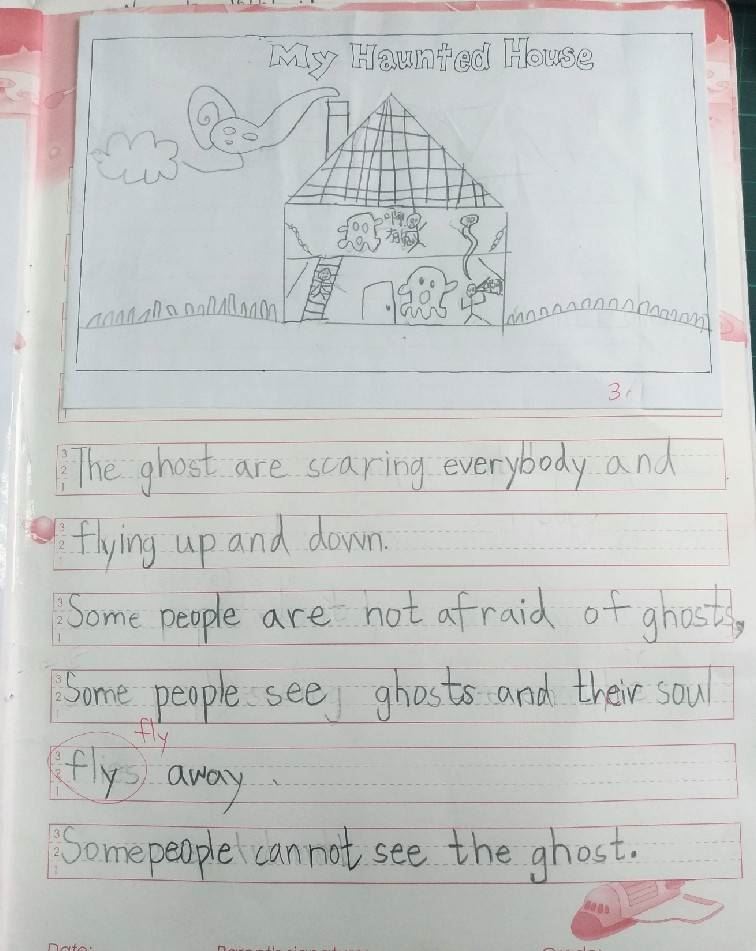 My Haunted House
啊
有鬼
3.
The ghost are scaring everybody and
flying up and down.
Some people are not afraid of ghosts,
Some people see ghosts and their soul
fly
flys away.
Some people cannot see the ghost.